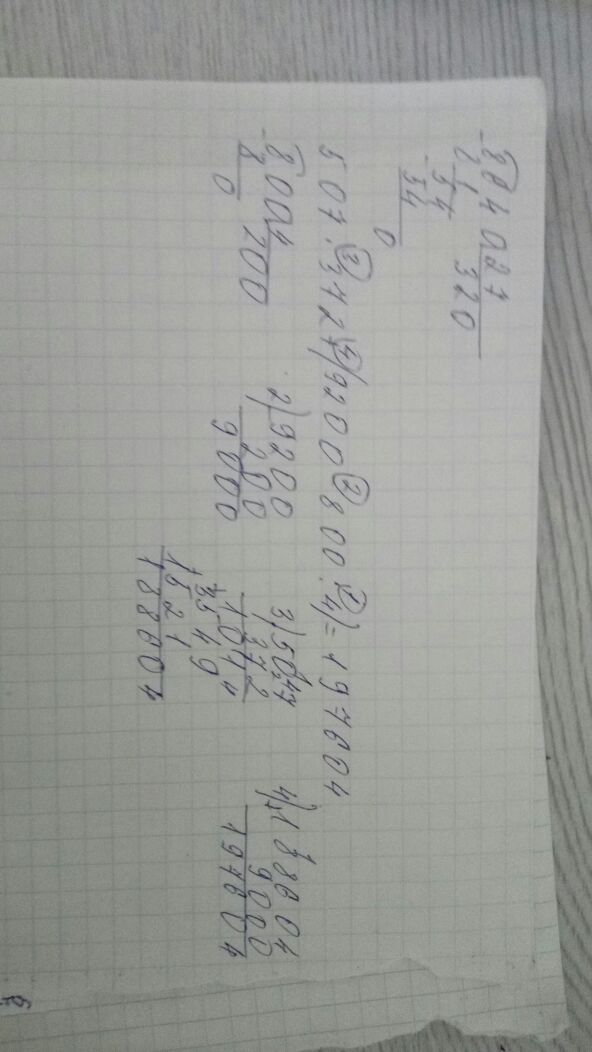 -8640 27
81 320
-54
54
0
507·372+(9200-800:4)=197604
-800 4
8 200
0
2) 9200
200
9000
3) 507
372
1014
3549
1521
188604
4) 188604
9000
197604